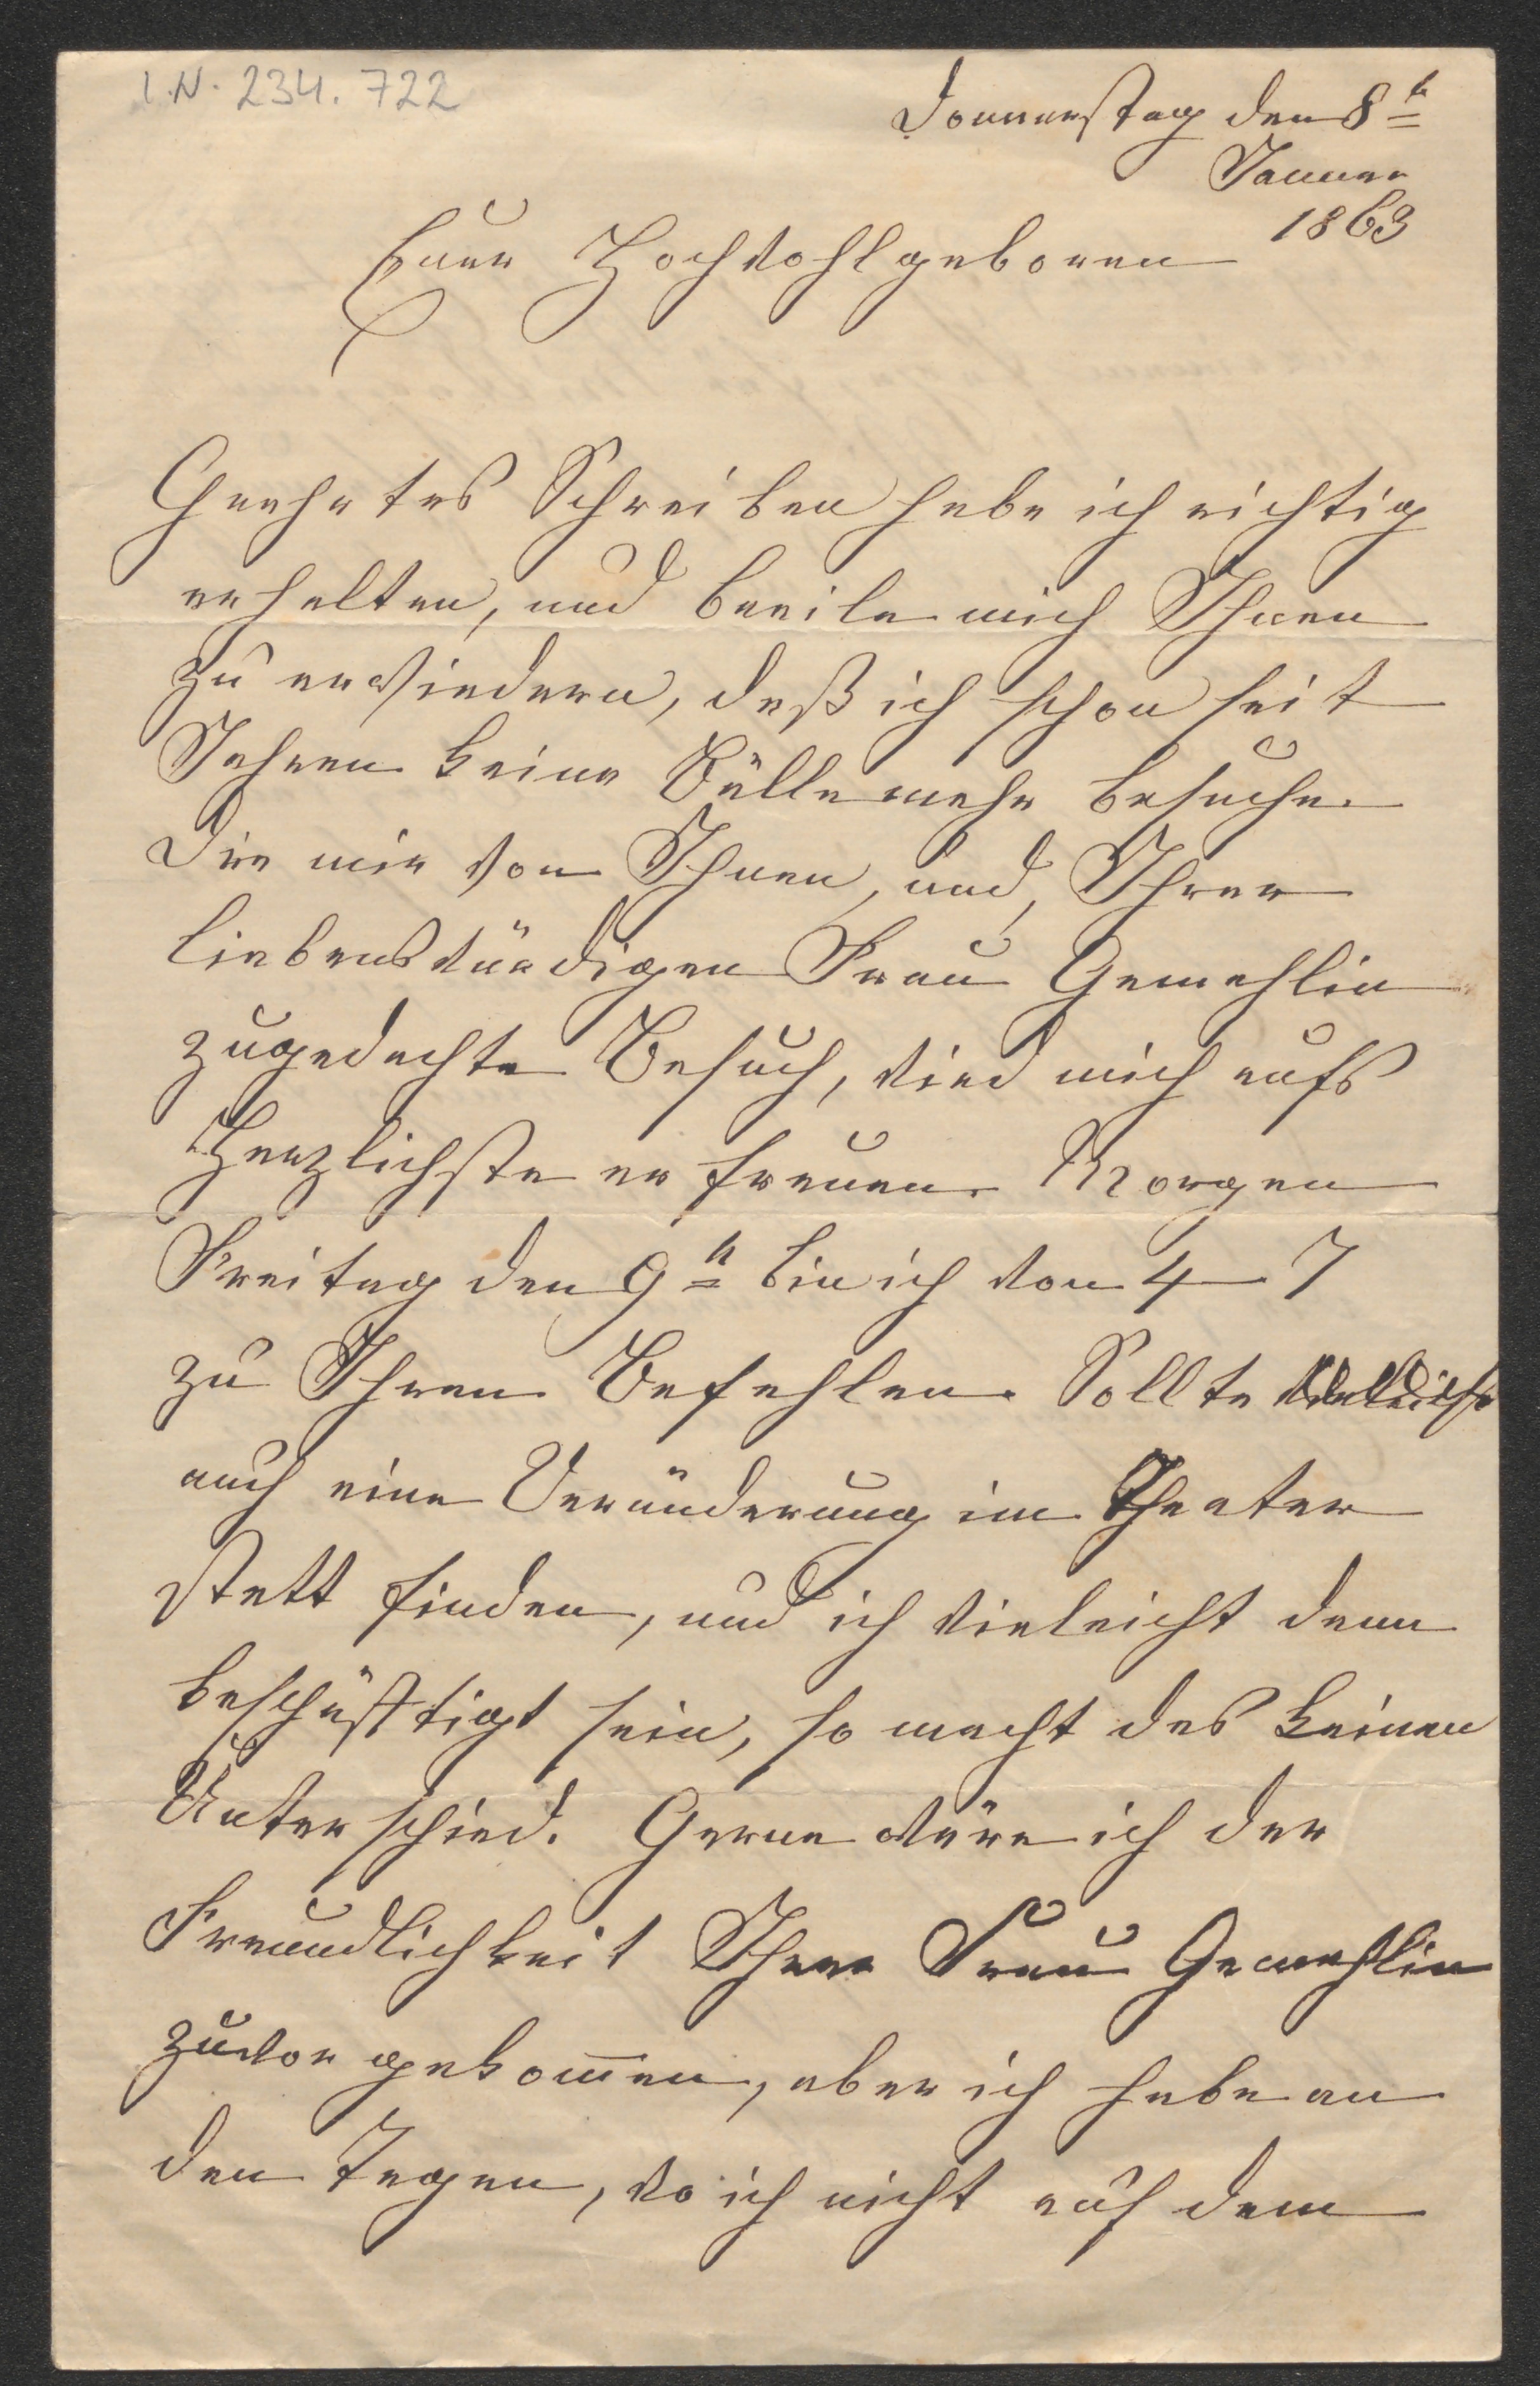 I.N. 234.722
Donnerstag den 8t
Januar
1863
Euer Hochwohlgeboren
Geehrtes Schreiben habe ich richtig
erhalten, und beeile mich Ihnen
zu erwiedern, daß ich schon seit
Jahren keine Bälle mehr besuche.
Der mir von Ihnen, und, Ihrer
liebenswürdigen Frau Gemahlin
zugedachte Besuch, wird mich aufs
Herzlichste erfreuen. Morgen
Freitag den 9n bin ich von 4–7
zu Ihren Befehlen. Sollte
auch eine Veränderung im Theater
statt finden, und ich vieleicht dann
beschäfttigt sein, so macht das keinen
Unterschied. Gerne wäre ich der
Freundlichkeit Ihrer Frau Gemahlin
zuvor gekom̅en, aber ich habe an
den Tagen, wo ich nicht auf dem